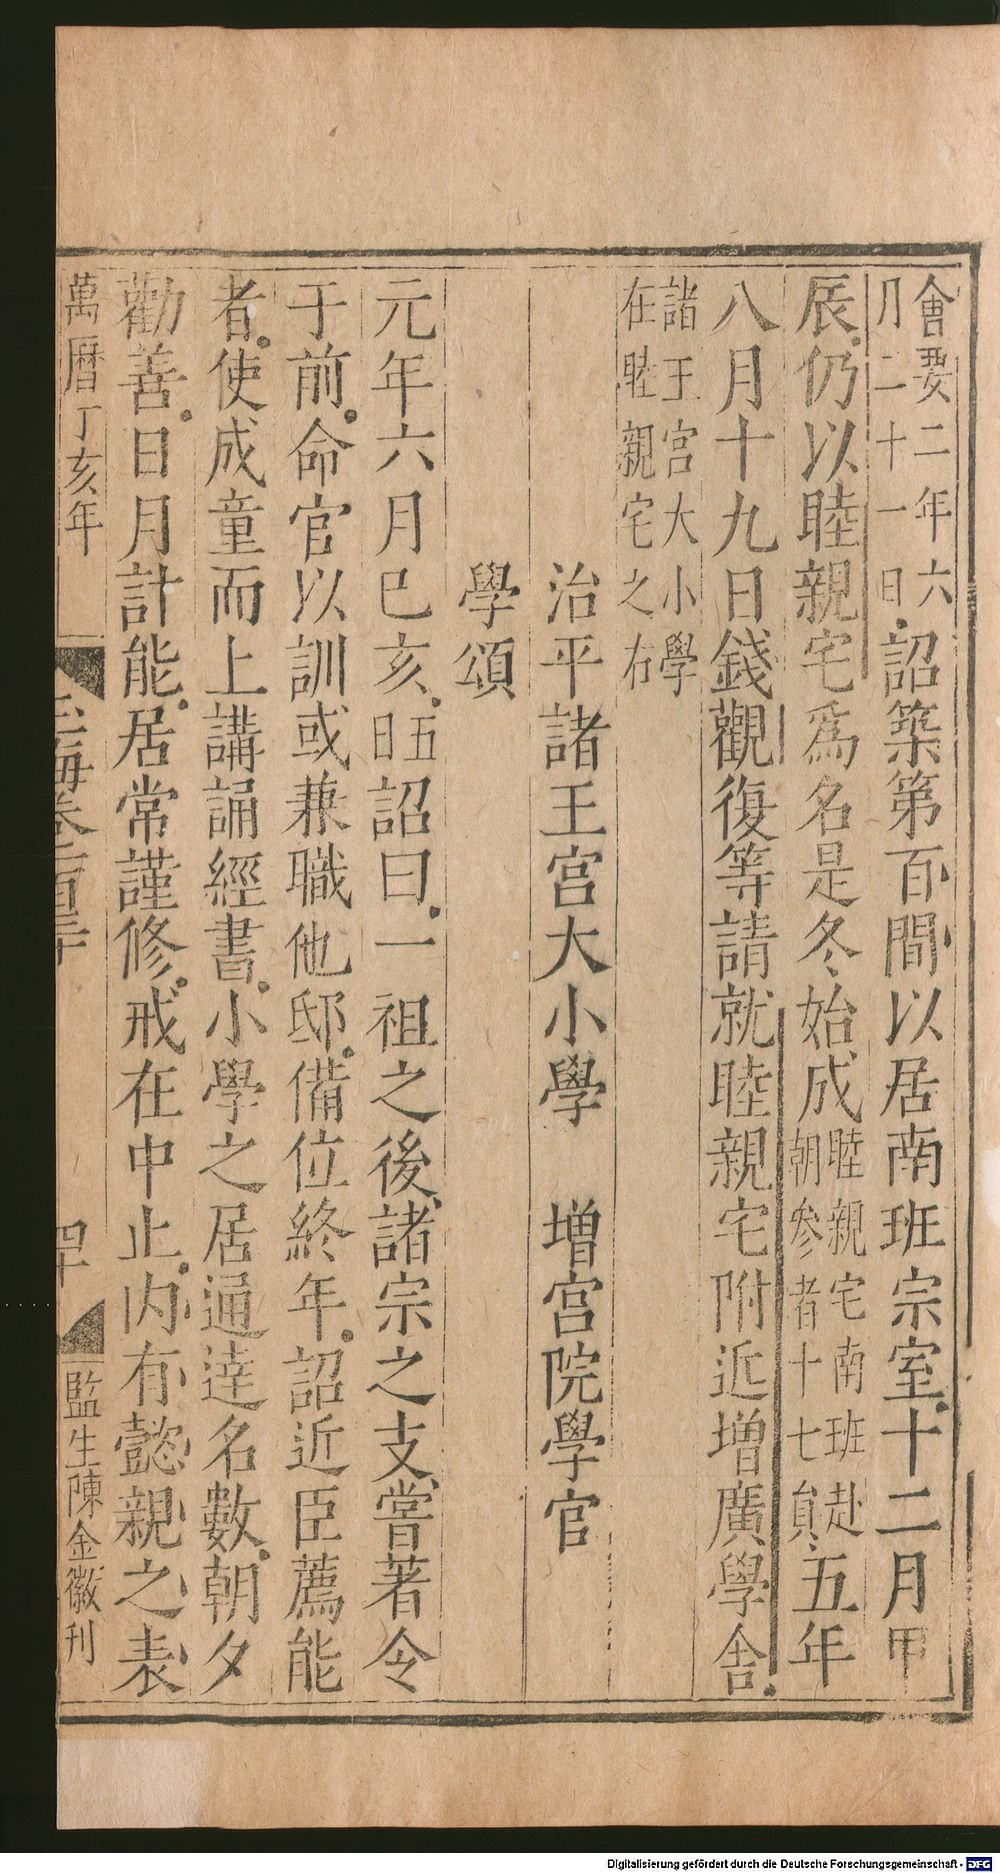 會要二年六
月二十一日詔築第百間以居南班宗室十二月甲
辰仍以睦親宅爲名是冬始成睦親宅南班赴
朝參者十七員五年
八月十九日錢觀復等請就睦親宅附近增廣學舍
諸王宮大小學
在睦親宅之右
治平諸王宮大小學 增宮院學官
學頌
元年六月巳亥五
日詔曰一祖之後諸宗之支嘗著令
于前命官以訓或兼職他邸備位終年詔近臣薦能
者使成童而上講誦經書小學之居通達名數朝夕
勸善日月計能居常謹修戒在中止內有懿親之表
萬曆丁亥年
玉海卷一百三十
四十
監生陳金徽刊
Digitalisierung gefördert durch die Deutsche Forschungsgemeinschaft - DFG